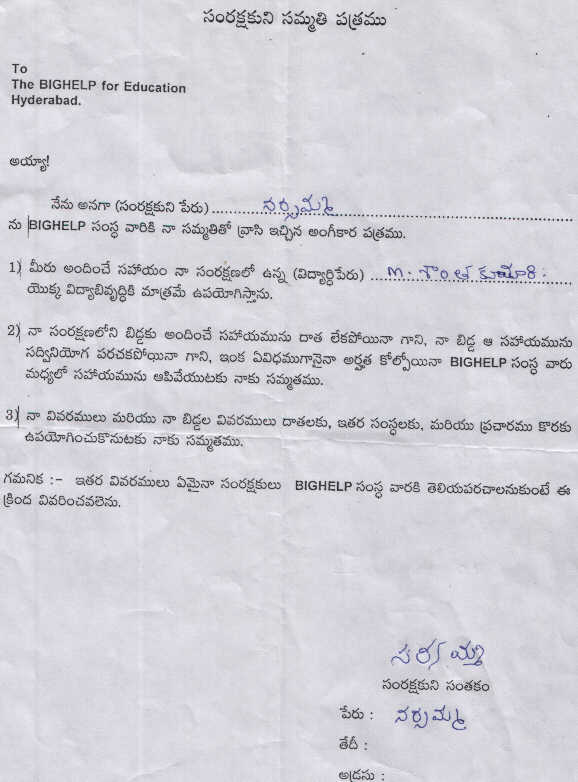 సంరక్షకుని సమ్మతి పత్రము
To
The BIGHELP for Education
Hyderabad.
అయ్యా!
నేను అనగా (సంరక్షకుని పేరు) నర్సమ్మ
ను BIGHELP సంస్థ వారికి నా సమ్మతితో వ్రాసి ఇచ్చిన అంగీకార పత్రము.
1) మీరు అందించే సహాయం నా సంరక్షణలో ఉన్న (విద్యార్ధిపేరు) M. శాంత కుమారి.
యొక్క విద్యాబివృద్ధికి మాత్రమే ఉపయోగిస్తాను.
2) నా సంరక్షణలోని బిడ్డకు అందించే సహాయమును దాత లేకపోయినా గాని, నా బిడ్డ ఆ సహాయమును
సద్వినియోగ పరచకపోయినా గాని, ఇంక ఏవిధముగానైనా అర్హత కోల్పోయినా BIGHELP సంస్థ వారు
మధ్యలో సహాయమును ఆపివేయుటకు నాకు సమ్మతము.
3) నా వివరములు మరియు నా బిడ్డల వివరములు దాతలకు, ఇతర సంస్థలకు, మరియు ప్రచారము కొరకు
ఉపయోగించుకొనుటకు నాకు సమ్మతము.
గమనిక :- ఇతర వివరములు ఏమైనా సంరక్షకులు BIGHELP సంస్థ వారకి తెలియపరచాలనుకుంటే ఈ
క్రింద వివరించవలెను.
నర్సమ్మ
సంరక్షకుని సంతకం
పేరు : నర్సమ్మ
తేదీ :
అడ్రసు :